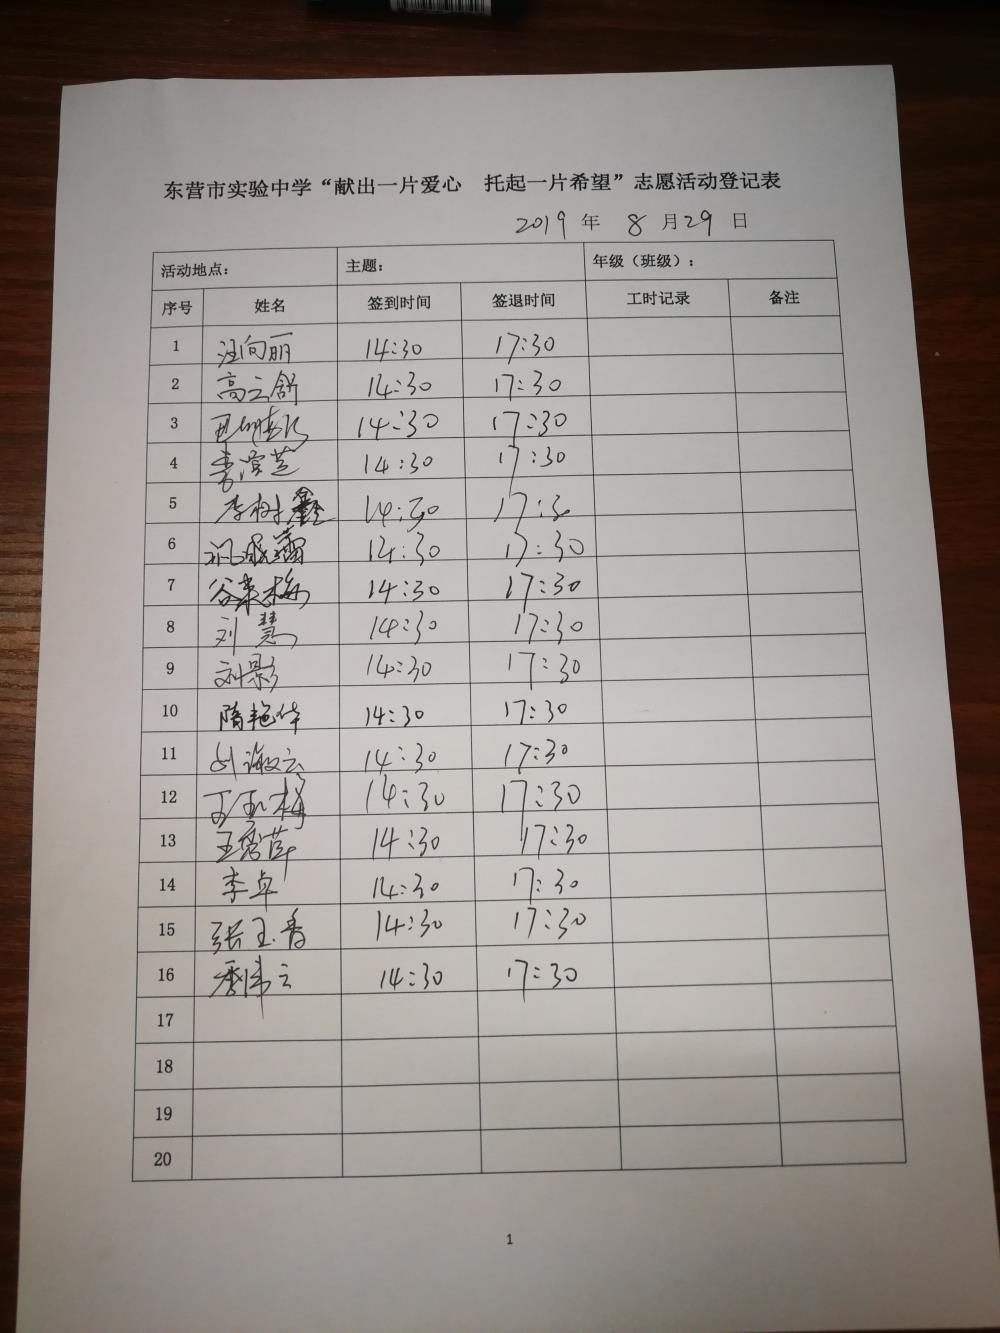 东营市实验中学“献出一片爱心　托起一片希望”志愿活动登记表
2019 年 8 月 29 日
活动地点： 主题： 年级（班级）：
序号 姓名 签到时间 签退时间 工时记录 备注
1 汪向丽 14:30 17:30
2 高云舒 14:30 17:30
3 14:30 17:30
4 14:30 17:30
5 李树鑫 14:30 17:30
6 14:30 17:30
7 谷荣梅 14:30 17:30
8 刘慧 14:30 17:30
9 刘影 14:30 17:30
10 隋艳华 14:30 17:30
11 14:30 17:30
12 14:30 17:30
13 王秀萍 14:30 17:30
14 李卓 14:30 17:30
15 张玉香 14:30 17:30
16 14:30 17:30
17
18
19
20
1